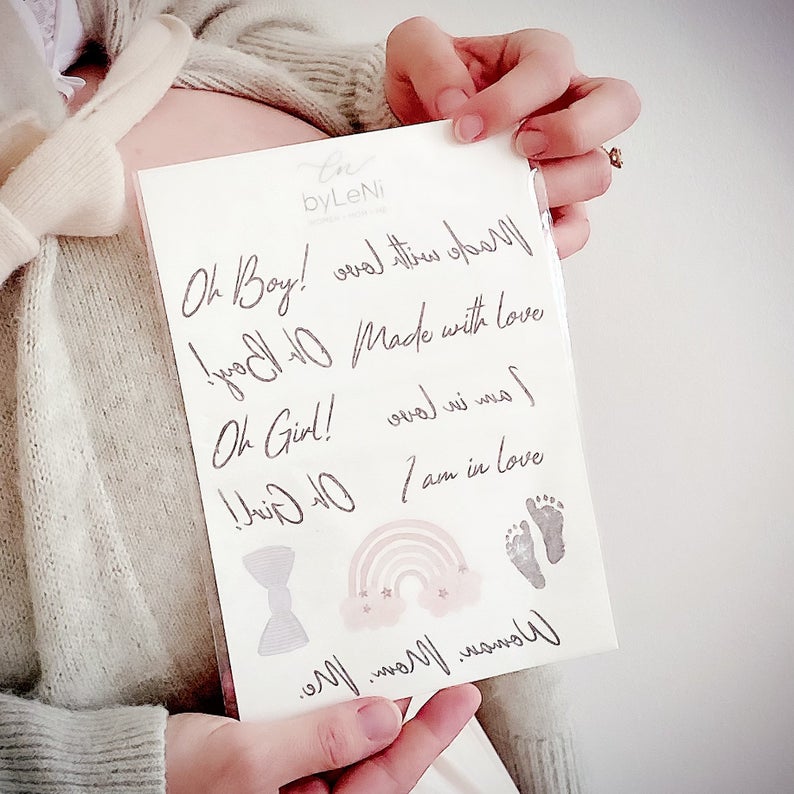 ln
byLeNi
WOMEN • MOM • ME
Oh Boy! Made with love
Oh Boy! Made with love
Oh Girl! I am in love
Oh Girl! I am in love
Woman. Mom. Me.